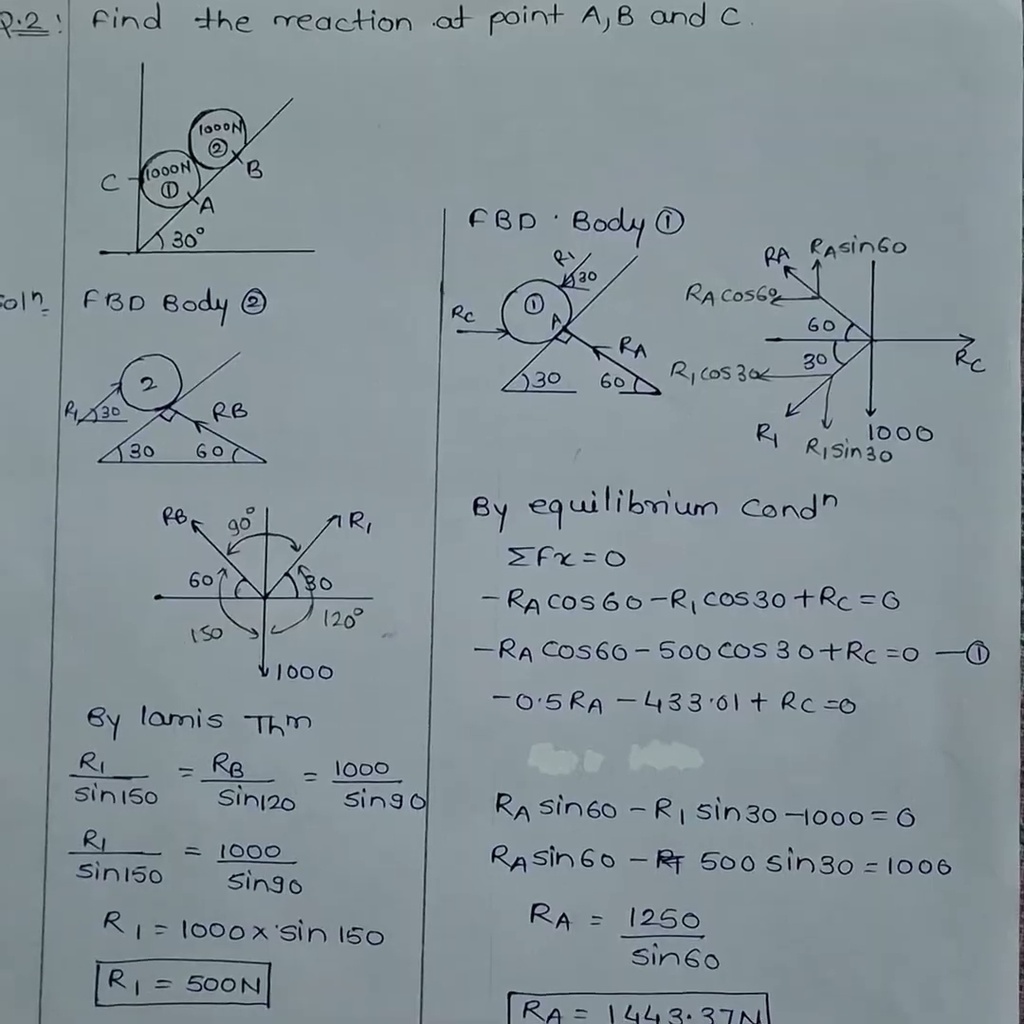 Q.2: Find the reaction at point A, B and C.
1000N
②
1000N
①
C
B
A
30°
Solⁿ FBD Body ②
2
R1 30
RB
30 60
RB 90° R1
60 30
150 120°
1000
By lamis Thm
R1/sin150 = RB/sin120 = 1000/sin90
R1/sin150 = 1000/sin90
R1 = 1000 × sin 150
R1 = 500N
FBD. Body ①
R1
30
①
A
RC
RA
30 60
RA RA sin60
RA cos60
60
30
RC
R1 cos30
R1 R1 sin30 1000
By equilibrium condⁿ
Σfx = 0
-RA cos60 - R1 cos30 + RC = 0
-RA cos60 - 500 cos30 + RC = 0 — ①
-0.5RA - 433.01 + RC = 0
RA sin60 - R1 sin30 - 1000 = 0
RA sin60 - 500 sin30 = 1000
RA = 1250/sin60
RA = 1443.37N